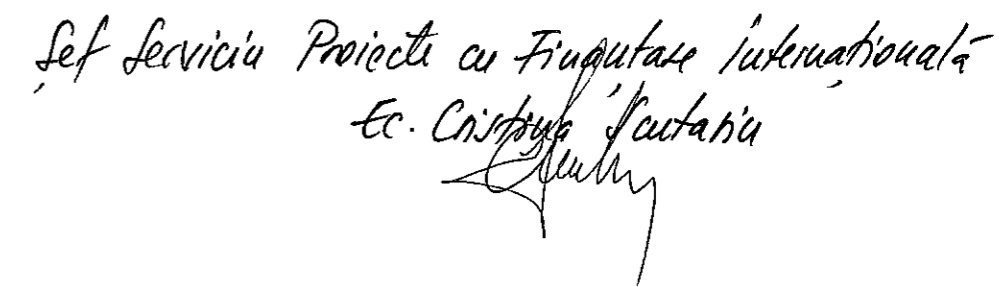 Șef Serviciu Proiecte cu Finanțare Internațională
Ec. Cristina Scutariu